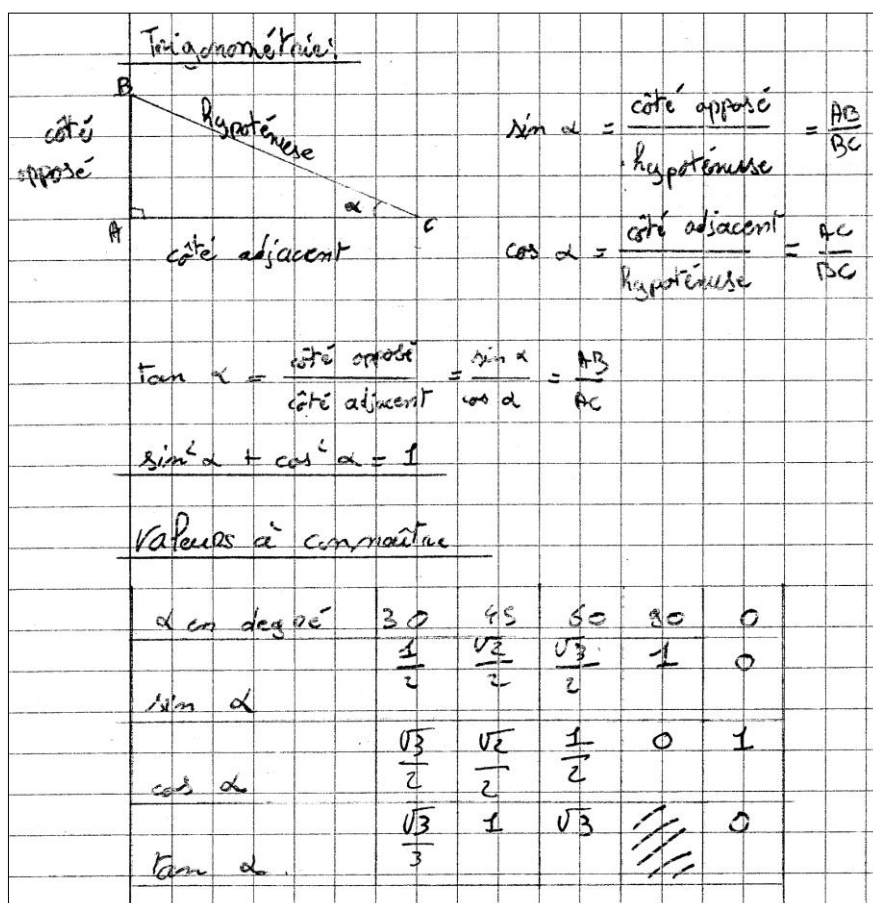 Trigonométrie:
B
côté
opposé
hypoténuse
A
α
C
côté adjacent
sin α = côté opposé / hypoténusse = AB / BC
cos α = côté adjacent / hypoténuse = AC / BC
tan α = côté opposé / côté adjacent = sin α / cos α = AB / AC
sin² α + cos² α = 1
Valeurs à connaître
α en degré 30 45 60 90 0
sin α 1/2 √2/2 √3/2 1 0
cos α √3/2 √2/2 1/2 0 1
tan α √3/3 1 √3 0